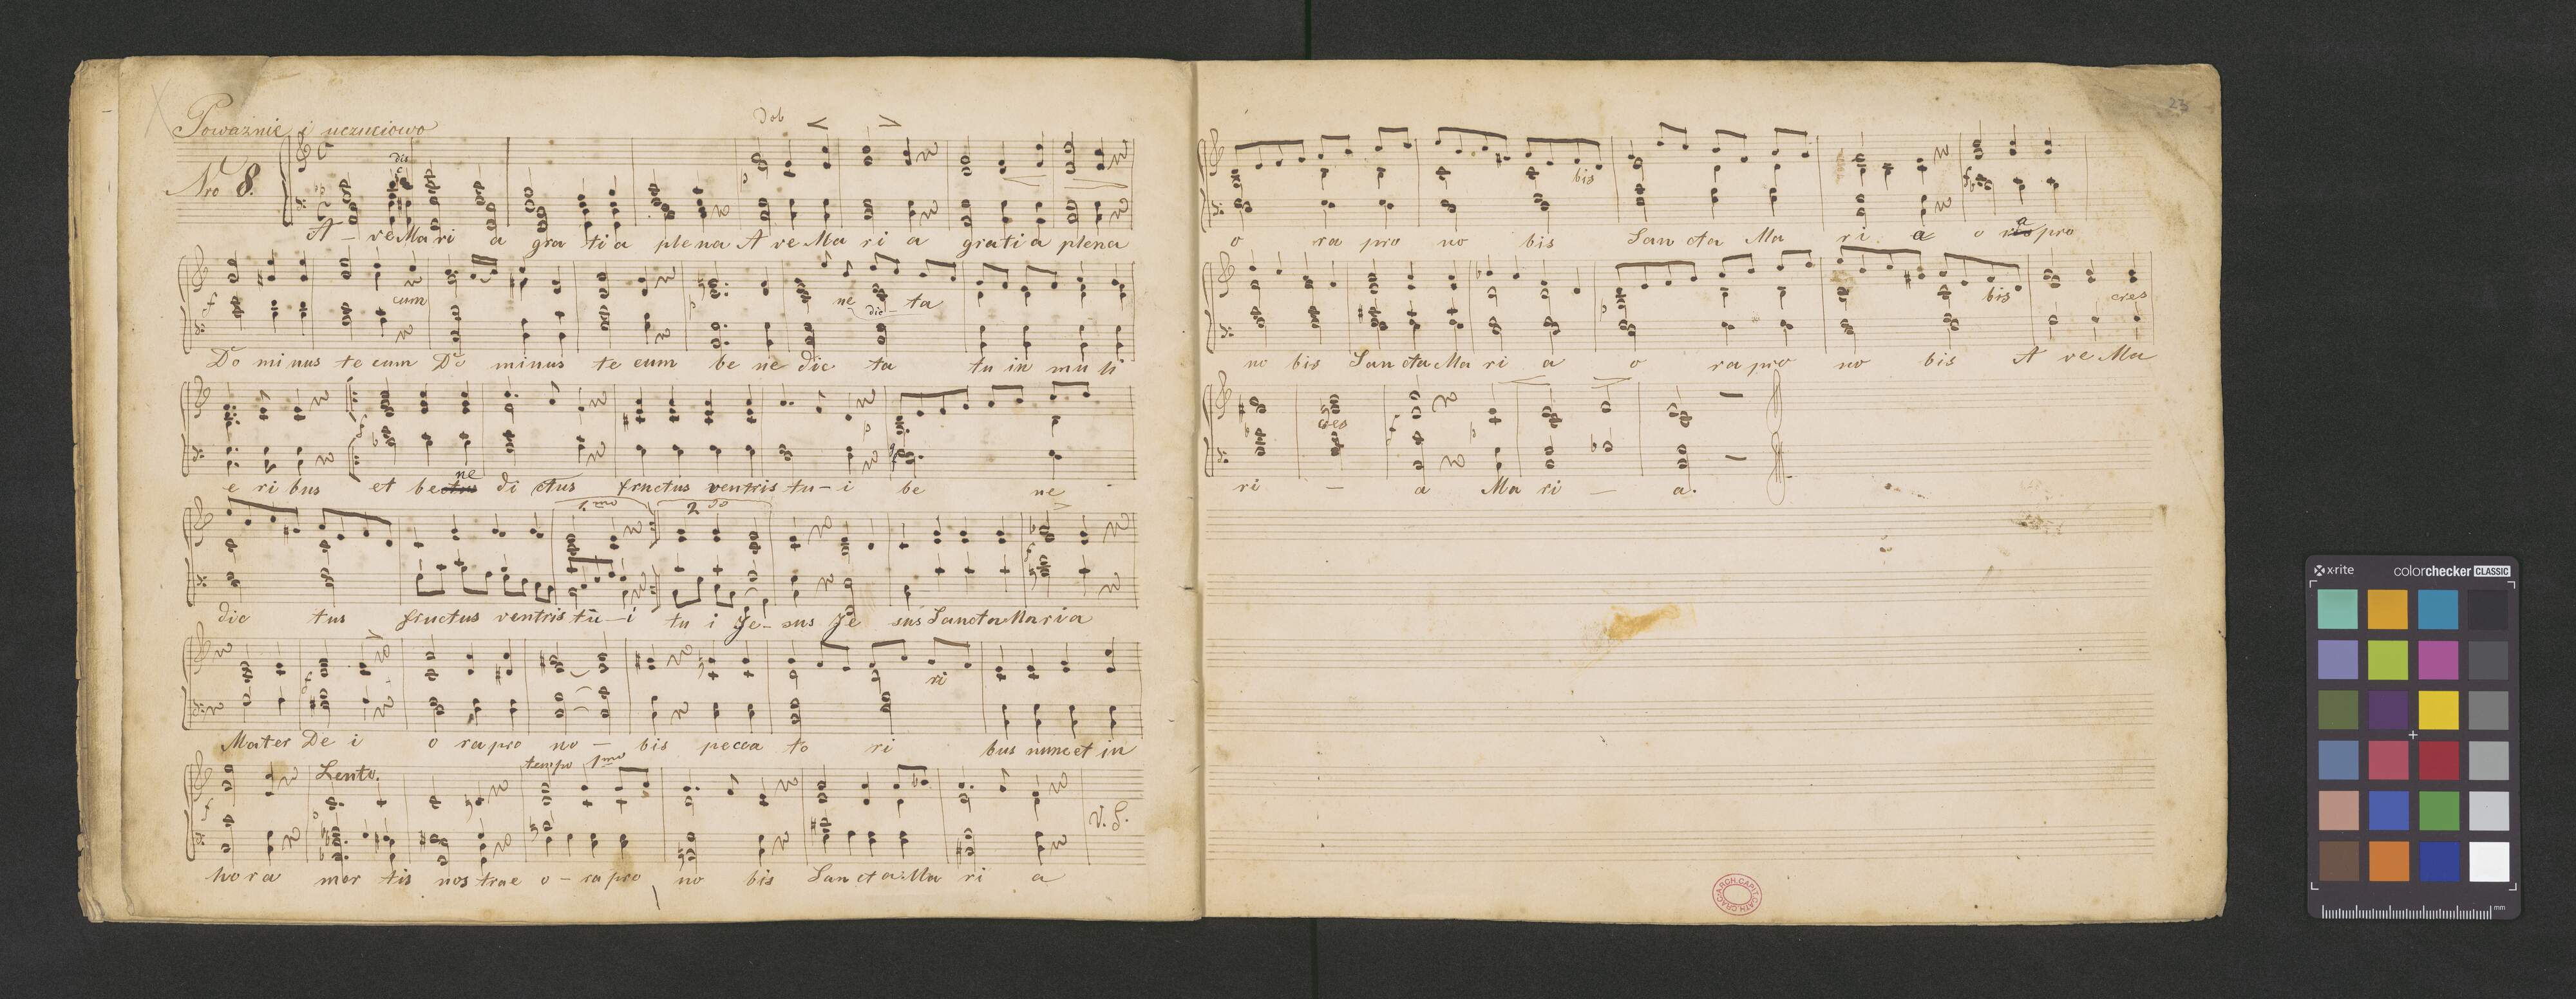 Poważnie i uczuciowo
Nro 8.
dis
dol
A - ve Ma ri a gra ti a ple na A ve Ma ri a gra ti a plena
cum ne dic - ta
Do mi nus te cum Do minus te cum be ne dic ta tu in mu li
e ri bus et be ne di ctus fructus ventris tu - i be ne
1.mo 2.do
dic tus fructus ventris tu - i tu i Je - sus Je sus Sancta Maria
ri
Mater De i o ra pro no - bis pecca to ri bus nunc et in
Lento. tempo 1mo
V. S.
ho ra mor tis nos trae o - ra pro no bis San cta Ma ri a
23
bis
o ra pro no bis San cta Ma ri a o ra pro
bis cres
no bis San cta Ma ri a o ra pro no bis A ve Ma
ces
ri - a Ma ri - a.
ARCH. CAPIT. CATH. CRAC.
x-rite colorchecker CLASSIC
mm